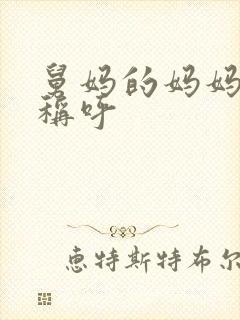 舅妈的妈妈
稱呼
惠特斯特布尔